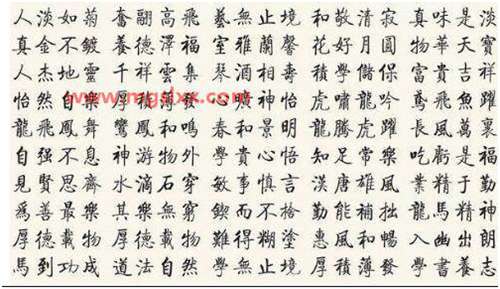 人淡如菊 奮翮高飛 藝無止境 和敬清寂 真味是淡
真金不鍍 養德澤福 室雅蘭馨 花好月圓 物華天寶
人杰地靈 千祥雲集 琴酒相壽 積學儲保 富貴吉祥
怡然自樂 厚積薄發 心廣神怡 虎嘯龍吟 鳶飛魚躍
龍飛鳳舞 鸞鳳和鳴 春和景明 龍騰虎躍 長風萬裏
自强不息 神游物外 學貴心悟 知足常樂 吃虧是福
見賢思齊 水滴石穿 敏事慎言 漢唐雄風 業精于勤
爲善最樂 其樂無窮 鍥而不捨 勤能補拙 龍馬精神
厚德載物 厚德載物 難得糊塗 惠風和暢 入幽出朗
馬到功成 道法自然 學無止境 厚積薄發 學書養志
www.mgslxx.com